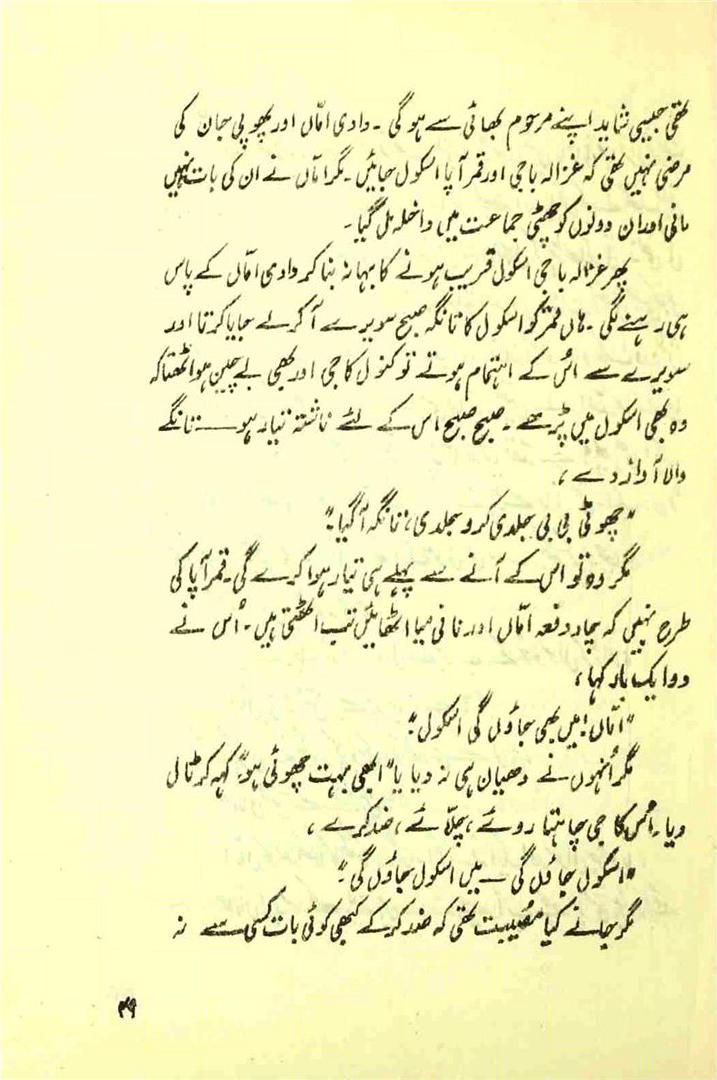 تھی جیسی شاید اپنے مرحوم بھائی سے ہو گی ۔ دادی امّاں اور پھوپی جان کی
مرضی نہیں تھی کہ غزالہ باجی اور قمر آپا اسکول جائیں ۔ مگر امّاں نے ان کی بات نہیں
مانی اور ان دونوں کو چھٹی جماعت میں داخلہ مل گیا ۔
پھر غزالہ باجی اسکول قریب ہونے کا بہانہ بنا کر دادی امّاں کے پاس
ہی رہنے لگی ۔ ہاں قمر کو اسکول کا تانگہ صبح سویرے آ کر لے جایا کرتا اور
سویرے سے اُس کے اہتمام ہوتے تو کنول کا جی اور بھی بے چین ہو اٹھتا کہ
وہ بھی اسکول میں پڑھے ۔ صبح صبح اس کے لئے ناشتہ تیار ہو ــــ تانگے
والا آواز دے ،
"چھوٹی بی بی جلدی کرو جلدی، تانگہ آ گیا ۔"
مگر وہ تو اس کے آنے سے پہلے ہی تیار ہوا کرے گی ۔ قمر آپا کی
طرح نہیں کہ چار دفعہ امّاں اور نانی میا اٹھائیں تب اٹھتی ہیں ۔ اُس نے
دو ایک بار کہا ،
"امّاں! میں بھی جاؤں گی اسکول ۔"
مگر اُنہوں نے دھیان ہی نہ دیا یا "ابھی بہت چھوٹی ہو" کہہ کر ٹال
دیا ۔ اُس کا جی چاہتا روئے ، چلّائے ، ضد کرے ،
"اسکول جاؤں گی ــ میں اسکول جاؤں گی ۔"
مگر جانے کیا مصیبت تھی کہ ضد کر کے کبھی کوئی بات کسی سے نہ
۴۹